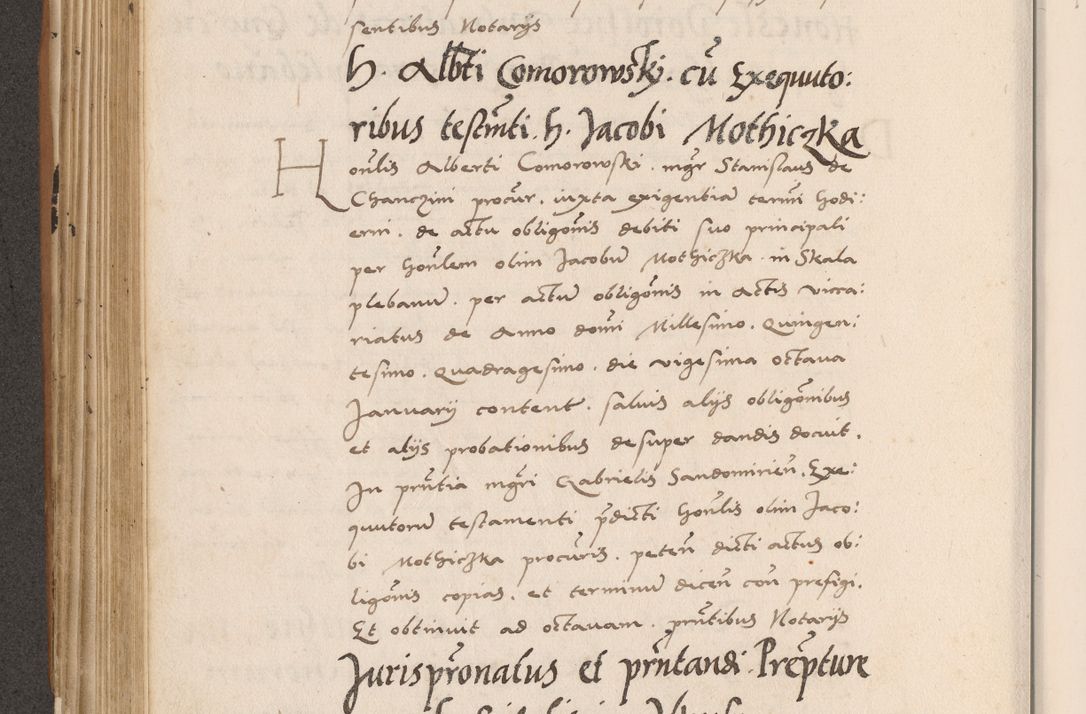 sentibus Notarijs
h. Albti Comorowski. cū Exequuto:
ribus testm̄ti. h. Jacobi Mothiczka
Honl̄is Alberti Comorowski. mgr̄ Stanislaus de
Chanczini procur̄. iuxta exigentiam term̄i hodi:
erni. de actu obligōnis debiti suo principali
per honl̄em olim Jacobū Mothiczka in Skala
plebanum. per actum obligōnis in Actis vicca:
riatus de Anno domī Millesimo. Quingen:
tesimo. Quadragesimo. die vigesima octaua
Januarij content. saluis alijs obligōnibus
et alijs probationibus desuper dandis docuit.
In prn̄tia mgr̄i Gabrielis Sandomirien̄. Exe:
quutorū testamenti p̄dicti honl̄is olim Jaco:
bi Mothiczka procur̄is. peten̄ dicti actus ob:
ligōnis copias. et terminum dicen̄ con̄ prefigi.
Et obtinuit ad octauam. prn̄tibus Notarijs
Jurispr̄onatus et prn̄tandi. Prēpture